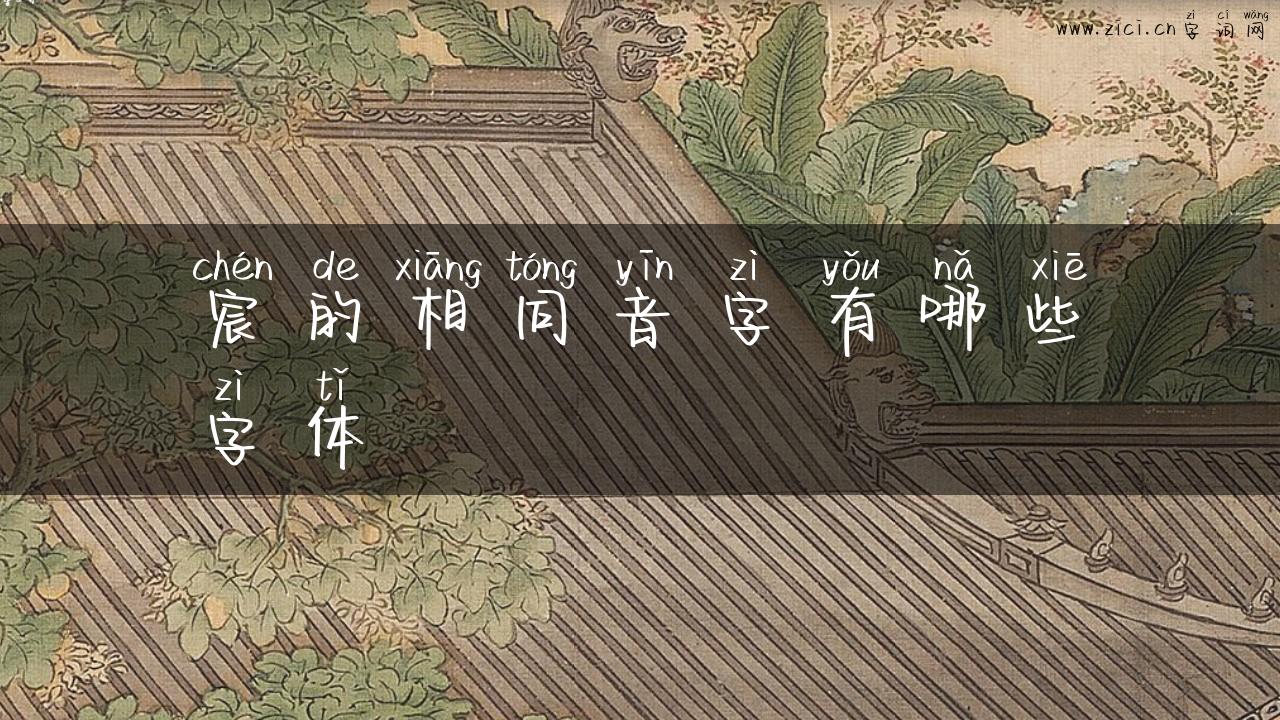 zì cí wǎng
www.zici.cn 字词网
chén de xiāng tóng yīn zì yǒu nǎ xiē
宸的相同音字有哪些
zì tǐ
字体